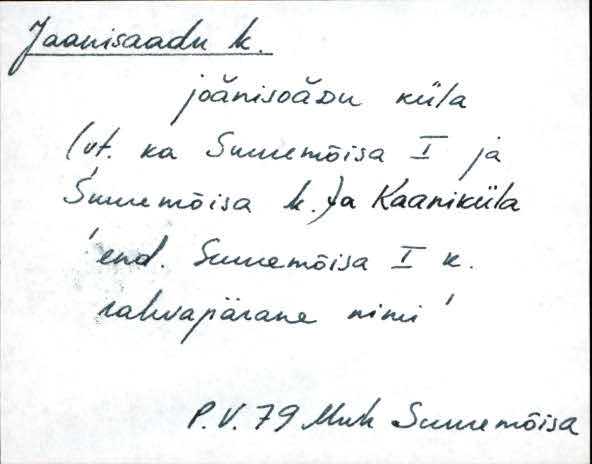 Jaanisaadu k.
joănisoăDu küla
(vt. ka Suuremõisa I ja
Suuremõisa k.) ja Kaaniküla
'end. Suuremõisa I k.
rahvapärane nimi'
P.V. 79 Muh Suuremõisa